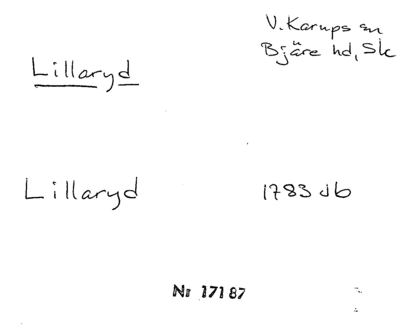 V. Karups sn
Bjäre hd, Sk
Lillaryd
Lillaryd
1783 Jb
Nr 17187